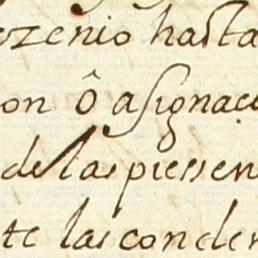 ezenio hasta
on ô asignac
de las piessen
te las conden